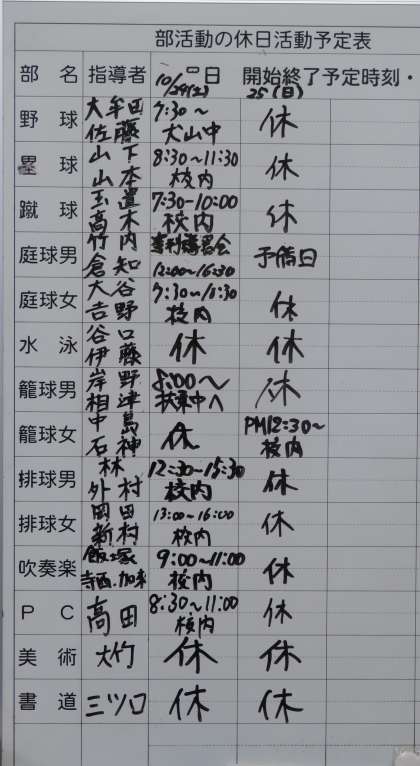 部活動の休日活動予定表
部 名 指導者 日 開始終了予定時刻・
10/29(土) 25(日)
野 球 大牟田 7:30～ 休
佐藤 犬山中
塁 球 山下 8:30～11:30 休
山本 校内
蹴 球 玉置 7:30-10:00 休
高木 校内
庭球男 竹内 審判講習会 予備日
倉知 12:00～16:30
庭球女 大谷 7:30～11:30 休
吉野 校内
水 泳 谷口 休 休
伊藤
籠球男 岸野 8:00～ 休
相津 扶桑中へ
籠球女 中島 休 PM12:30～
石神 校内
排球男 林 12:30～15:30 休
外村 校内
排球女 岡田 13:00～16:00 休
新村 校内
吹奏楽 飯塚 9:00～11:00 休
寺西.加来 校内
P C 高田 8:30～11:00 休
校内
美 術 大竹 休 休
書 道 三ツ口 休 休